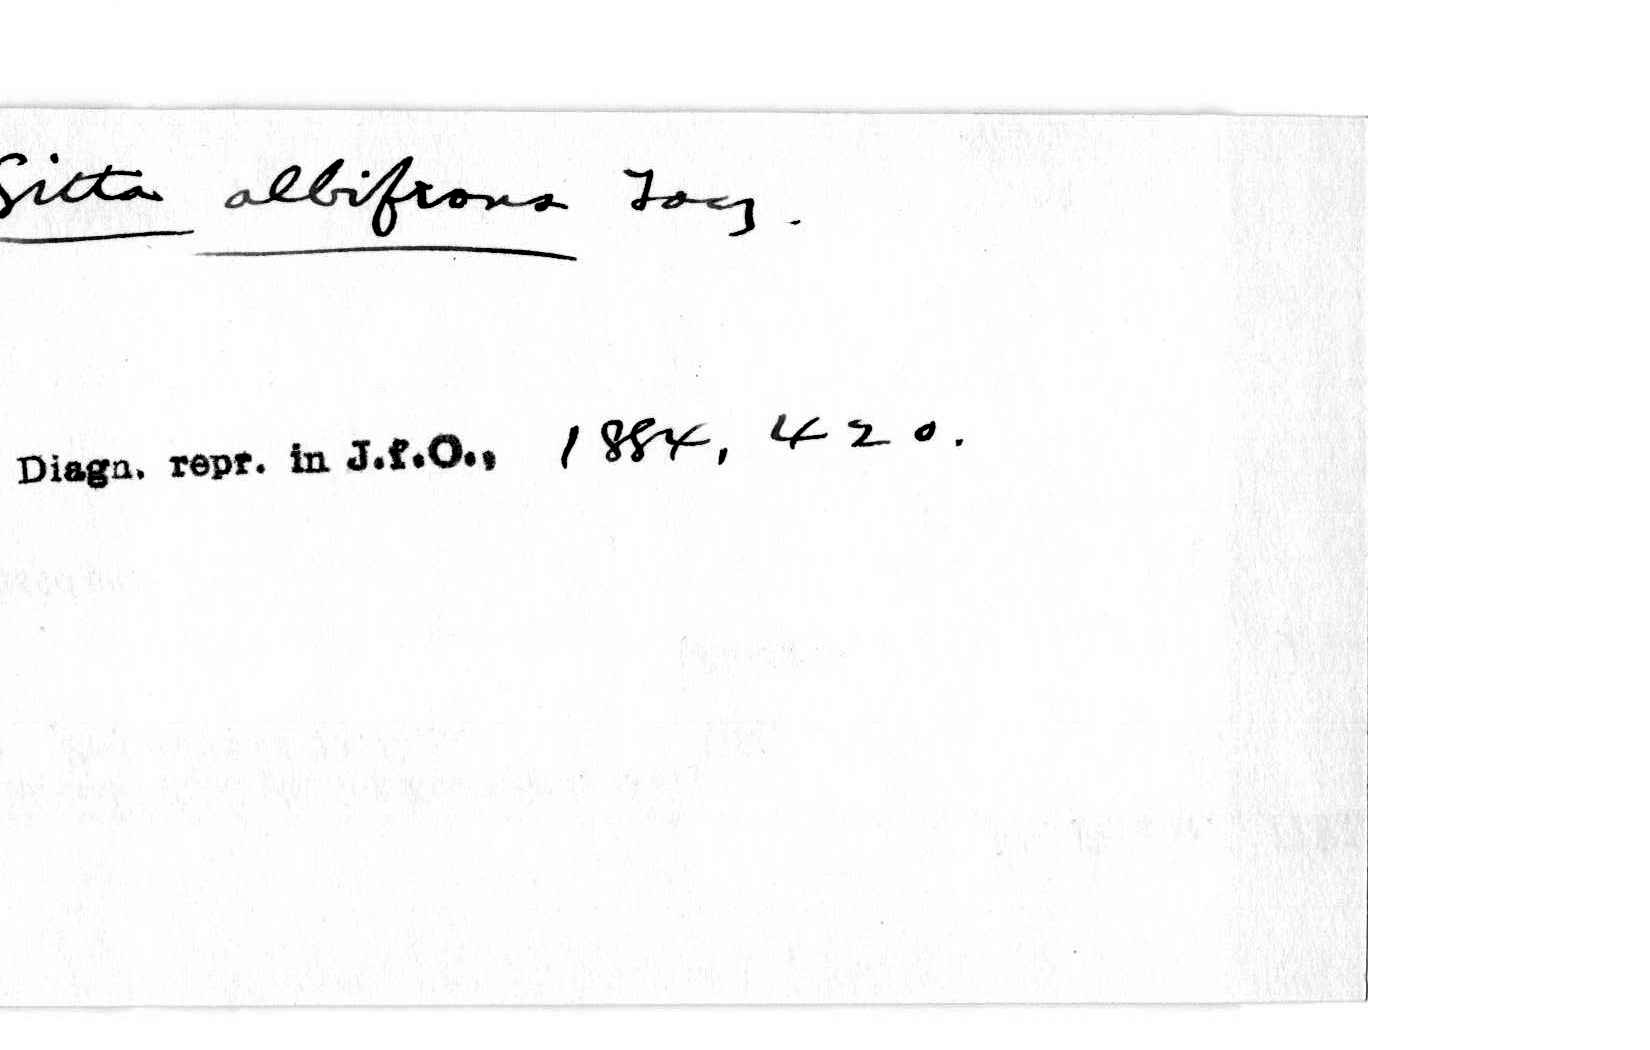 Sitta albifrons Tacz.
Diagn. repr. in J.f.O., 1884, 420.